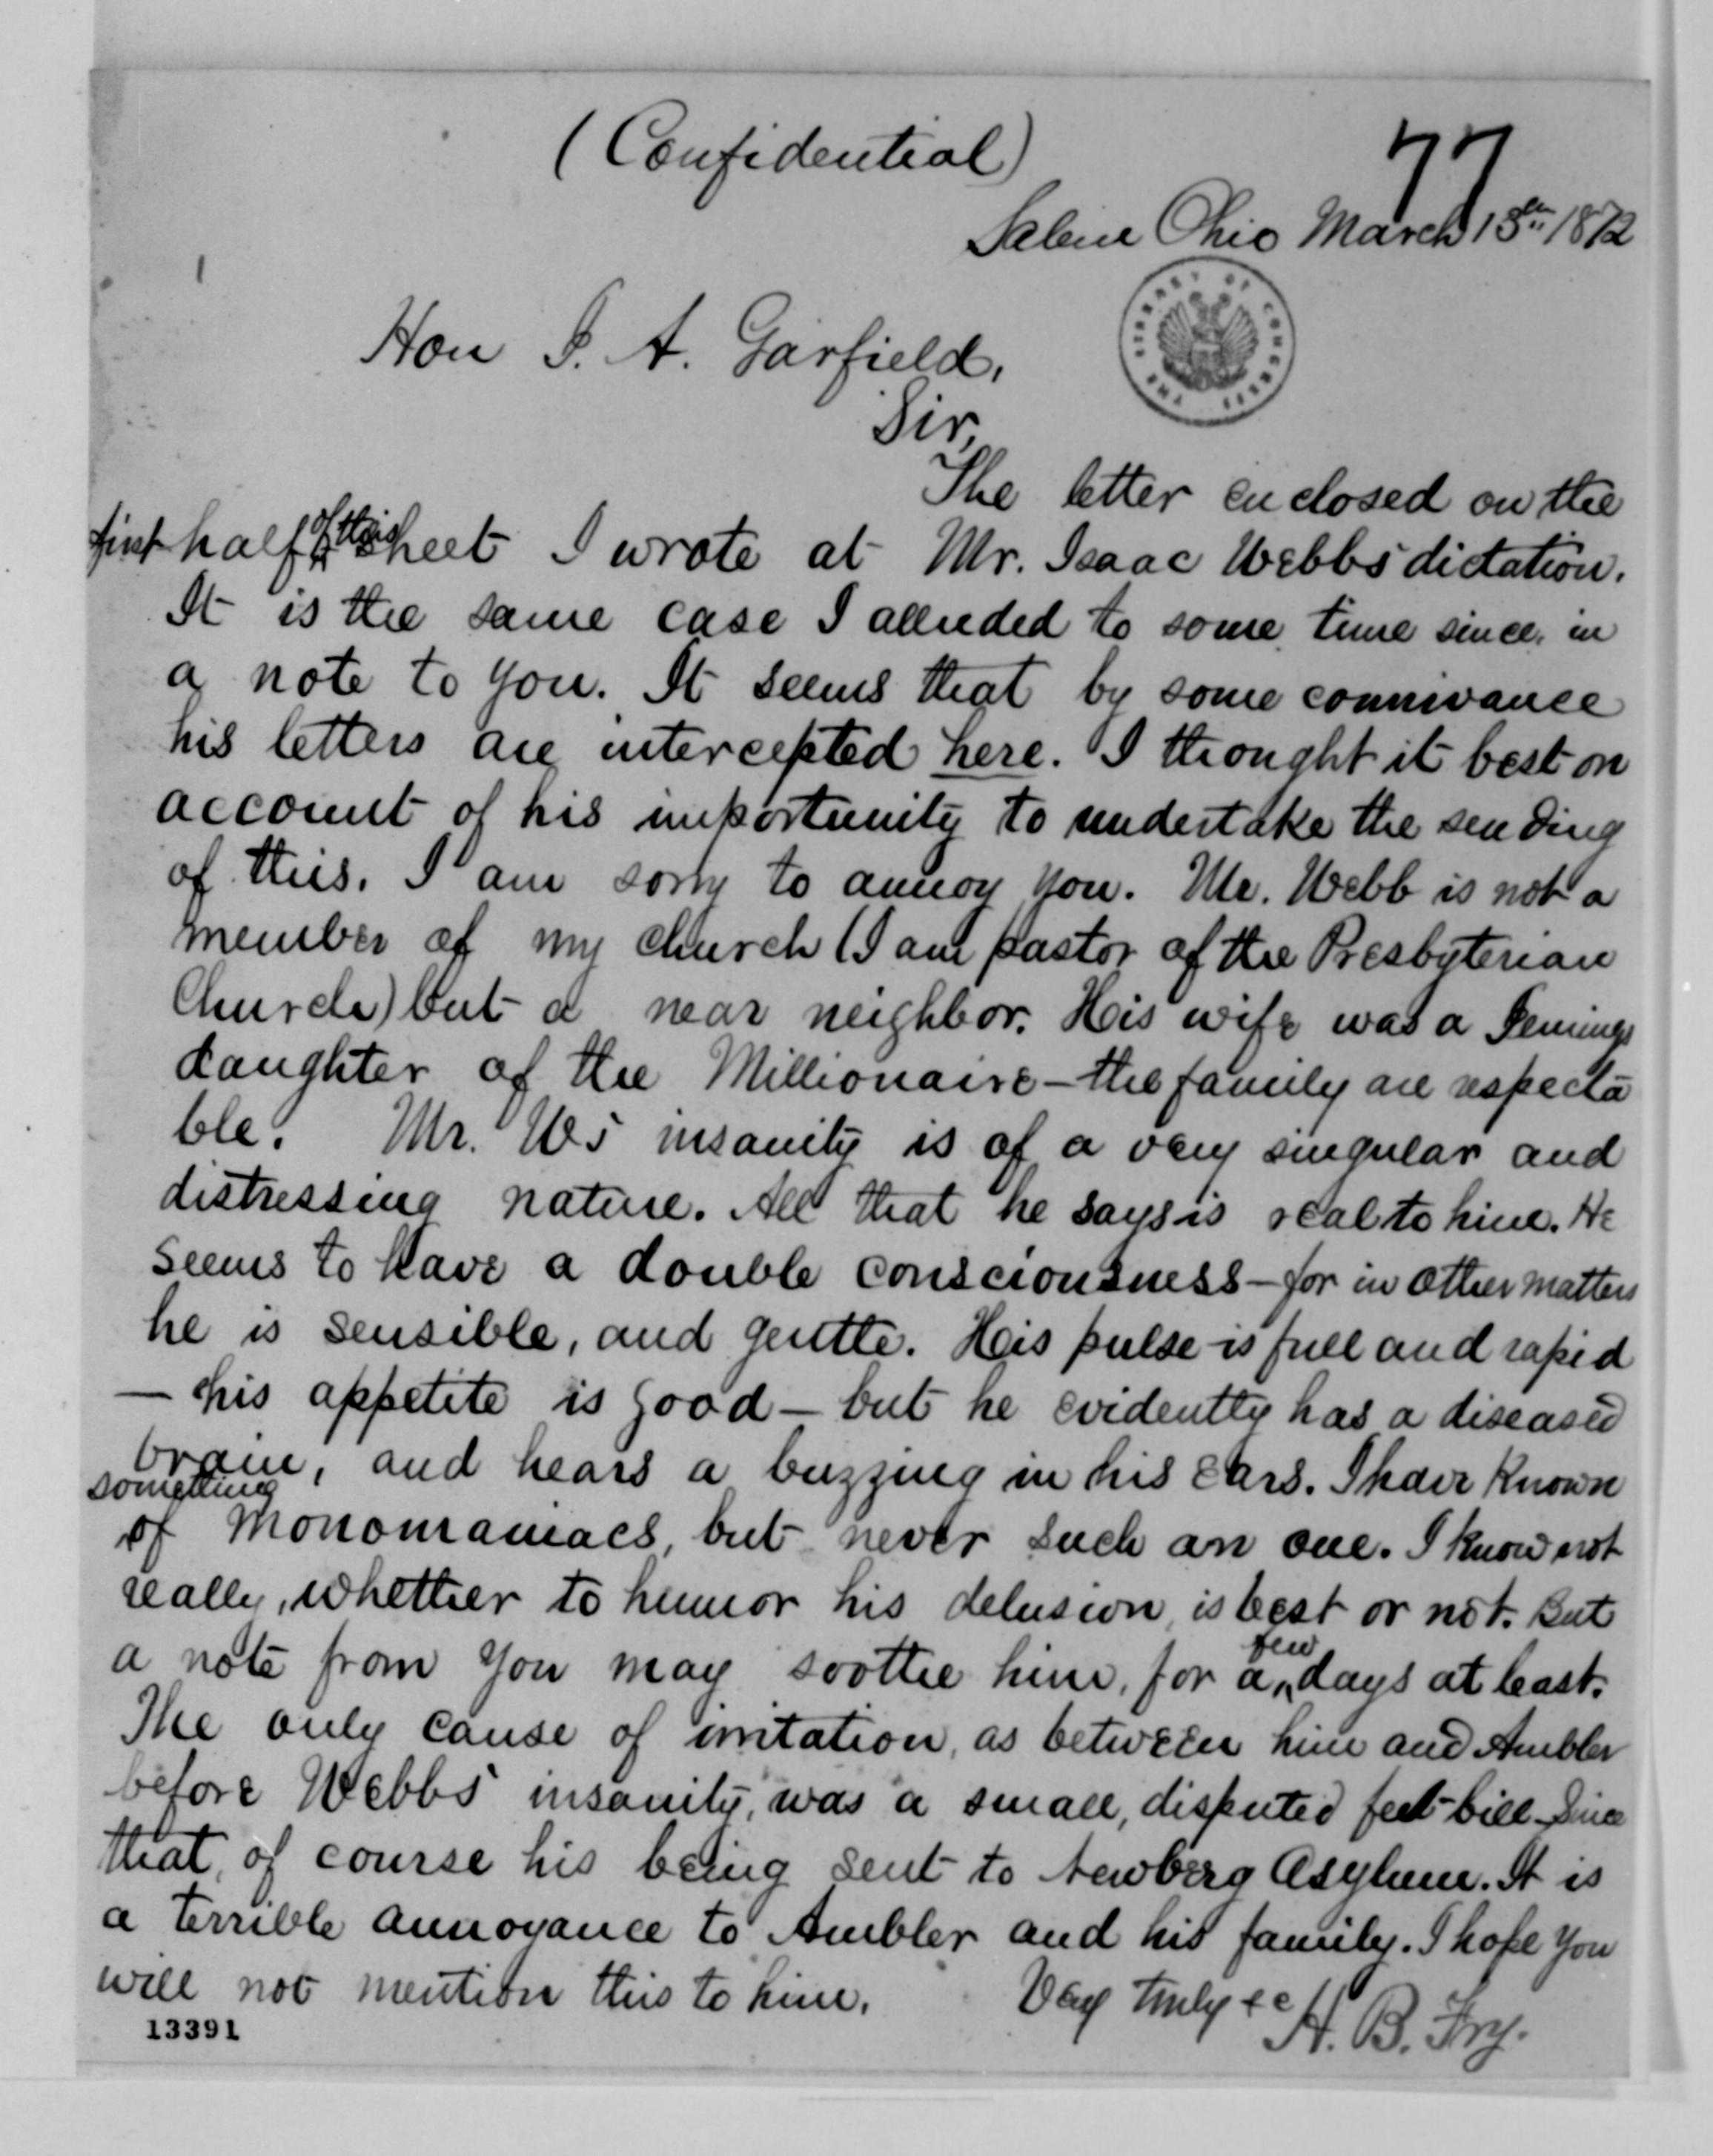 (Confidential)
77
Salem Ohio March 13th 1872
THE LIBRARY OF CONGRESS
Hon J. A. Garfield,
Sir,
The letter enclosed on the
first half of this sheet I wrote at Mr. Isaac Webbs dictation.
It is the same case I alluded to some time since, in
a note to you. It seems that by some connivance
his letters are intercepted here. I thought it best on
account of his importunity to undertake the sending
of this. I am sorry to annoy you. Mr. Webb is not a
member of my church (I am pastor of the Presbyterian
Church) but a near neighbor. His wife was a Jennings
daughter of the Millionaire - the family are respecta
ble. Mr. Ws insanity is of a very singular and
distressing nature. All that he says is real to him. He
seems to have a double consciousness - for in other matters
he is sensible, and gentle. His pulse is full and rapid
- his appetite is good - but he evidently has a diseased
brain, and hears a buzzing in his ears. I have known
something
of Monomaniacs, but never such an one. I know not
really, whether to humor his delusion is best or not. But
a note from you may soothe him, for a few days at least.
The only cause of irritation, as between him and Ambler
before Webbs insanity, was a small, disputed fee-bill - Since
that, of course his being sent to Newberg Asylum. It is
a terrible annoyance to Ambler and his family. I hope you
will not mention this to him.
Very truly &c H. B. Fry.
13391